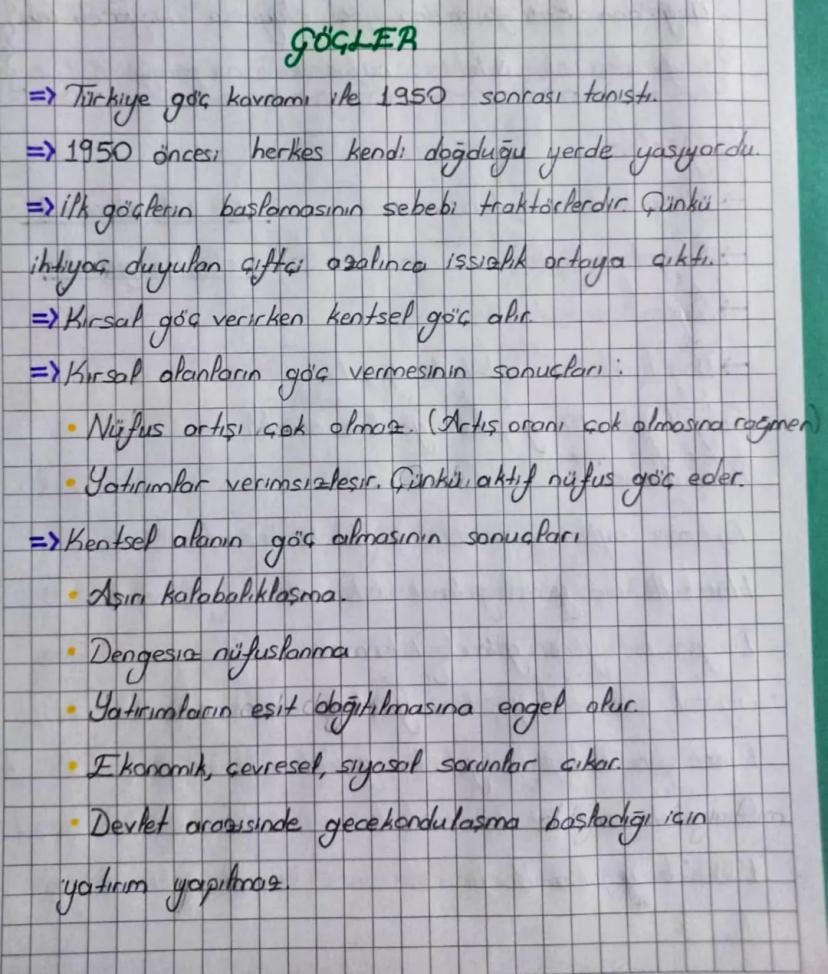 GÖÇLER
=> Türkiye göç kavramı ile 1950 sonrası tanıştı.
=> 1950 öncesi herkes kendi doğduğu yerde yaşıyordu.
=> İlk göçlerin başlamasının sebebi traktörlerdir. Çünkü
ihtiyaç duyulan çiftçi azalınca işsizlik ortaya çıktı.
=> Kırsal göç verirken kentsel göç alır.
=> Kırsal alanların göç vermesinin sonuçları:
• Nüfus artışı çok olmaz. (Artış oranı çok olmasına rağmen)
• Yatırımlar verimsizleşir. Çünkü, aktif nüfus göç eder.
=> Kentsel alanın göç almasının sonuçları
• Aşırı kalabalıklaşma.
• Dengesiz nüfuslanma
• Yatırımların eşit dağıtılmasına engel olur.
• Ekonomik, çevresel, siyasal sorunlar çıkar.
• Devlet arazisinde gecekondulaşma başladığı için
yatırım yapılmaz.